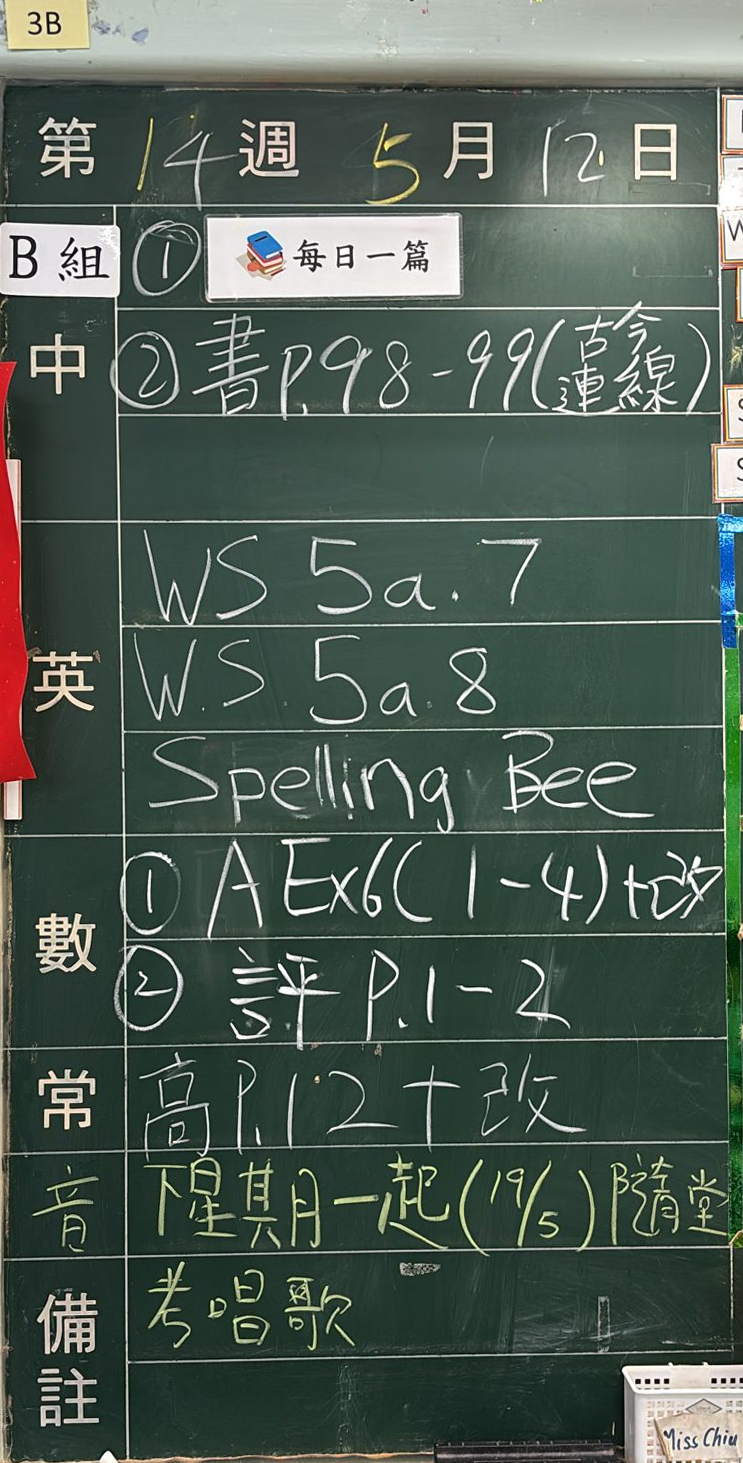 3B
第 14 週 5 月 12 日
B 組 ① 每日一篇
中 ② 書P.98-99(古今連線)
英
WS 5a.7
W.S 5a.8
Spelling Bee
數
① A Ex6(1-4)+改
② 評 P.1-2
常 高P.12+改
音 下星期一起(19/5)隨堂
考唱歌
備註
Miss Chiu